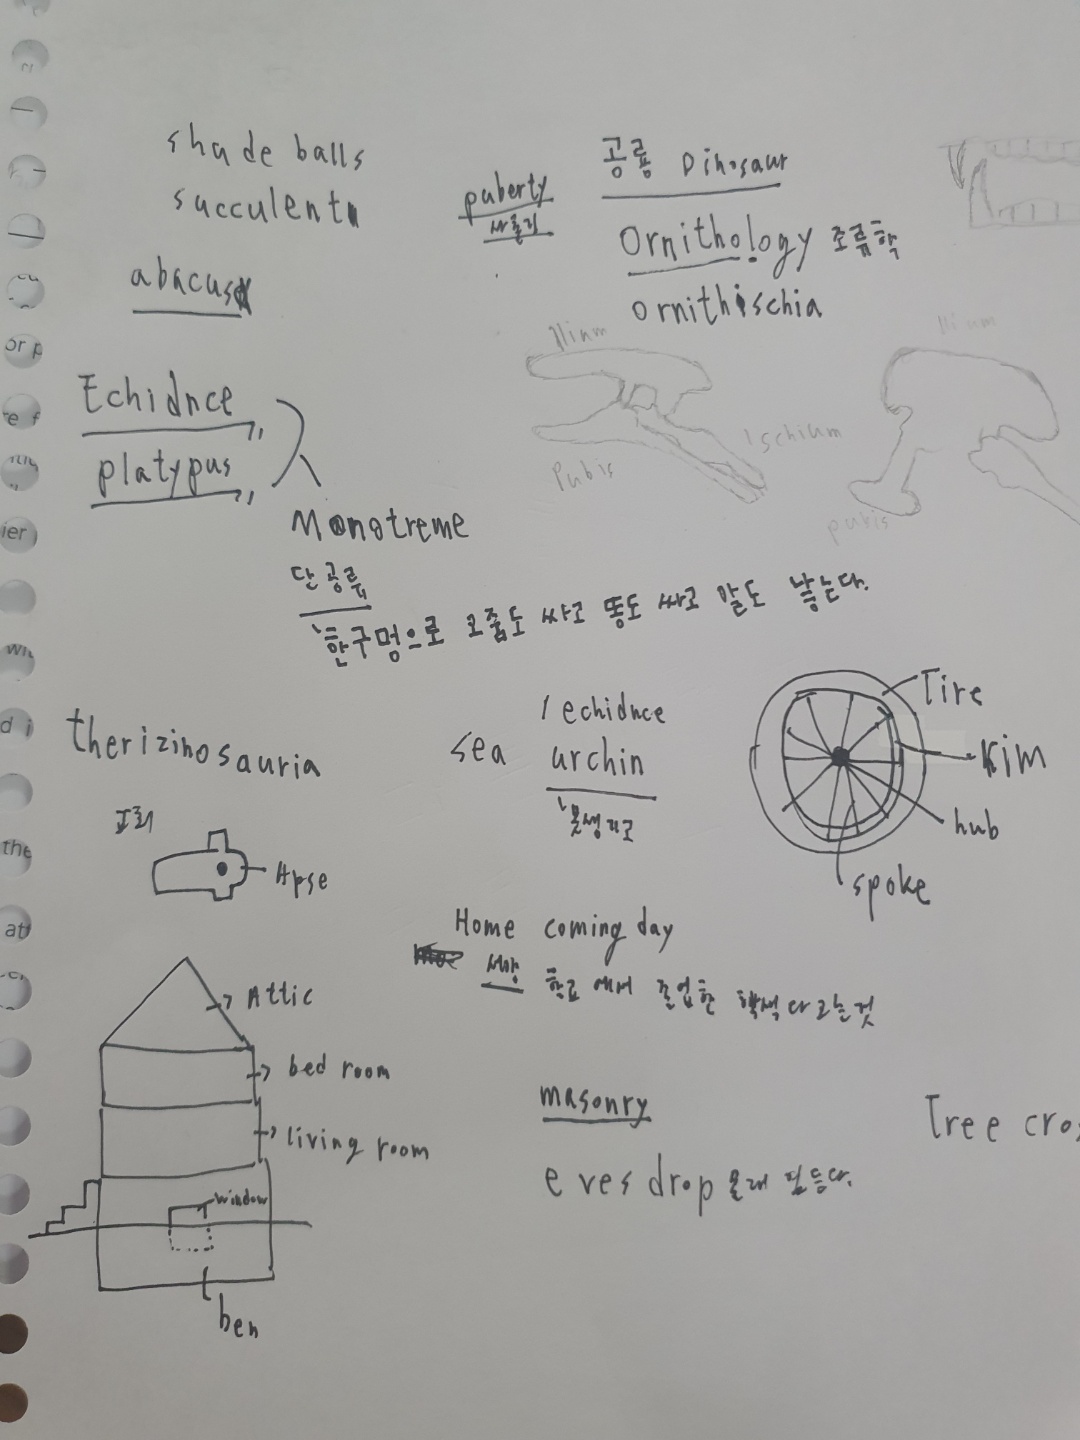 shade balls
succulent
abacus
puberty
공룡 Dinosaur
Ornithology 조류학
Ornithischia
Ilium
Ischium
Pubis
Ilium
pubis
Echidnce
platypus
Monotreme
단공류
한구멍으로 오줌도 싸고 똥도 싸고 알도 낳는다.
therizinosauria
sea
echidnce
urchin
Tire
Kim
hub
spoke
교회
Apse
Home coming day
서양 학교에서 졸업한
Attic
bed room
living room
window
ben
masonry
evesdrop 몰래
Tree cros